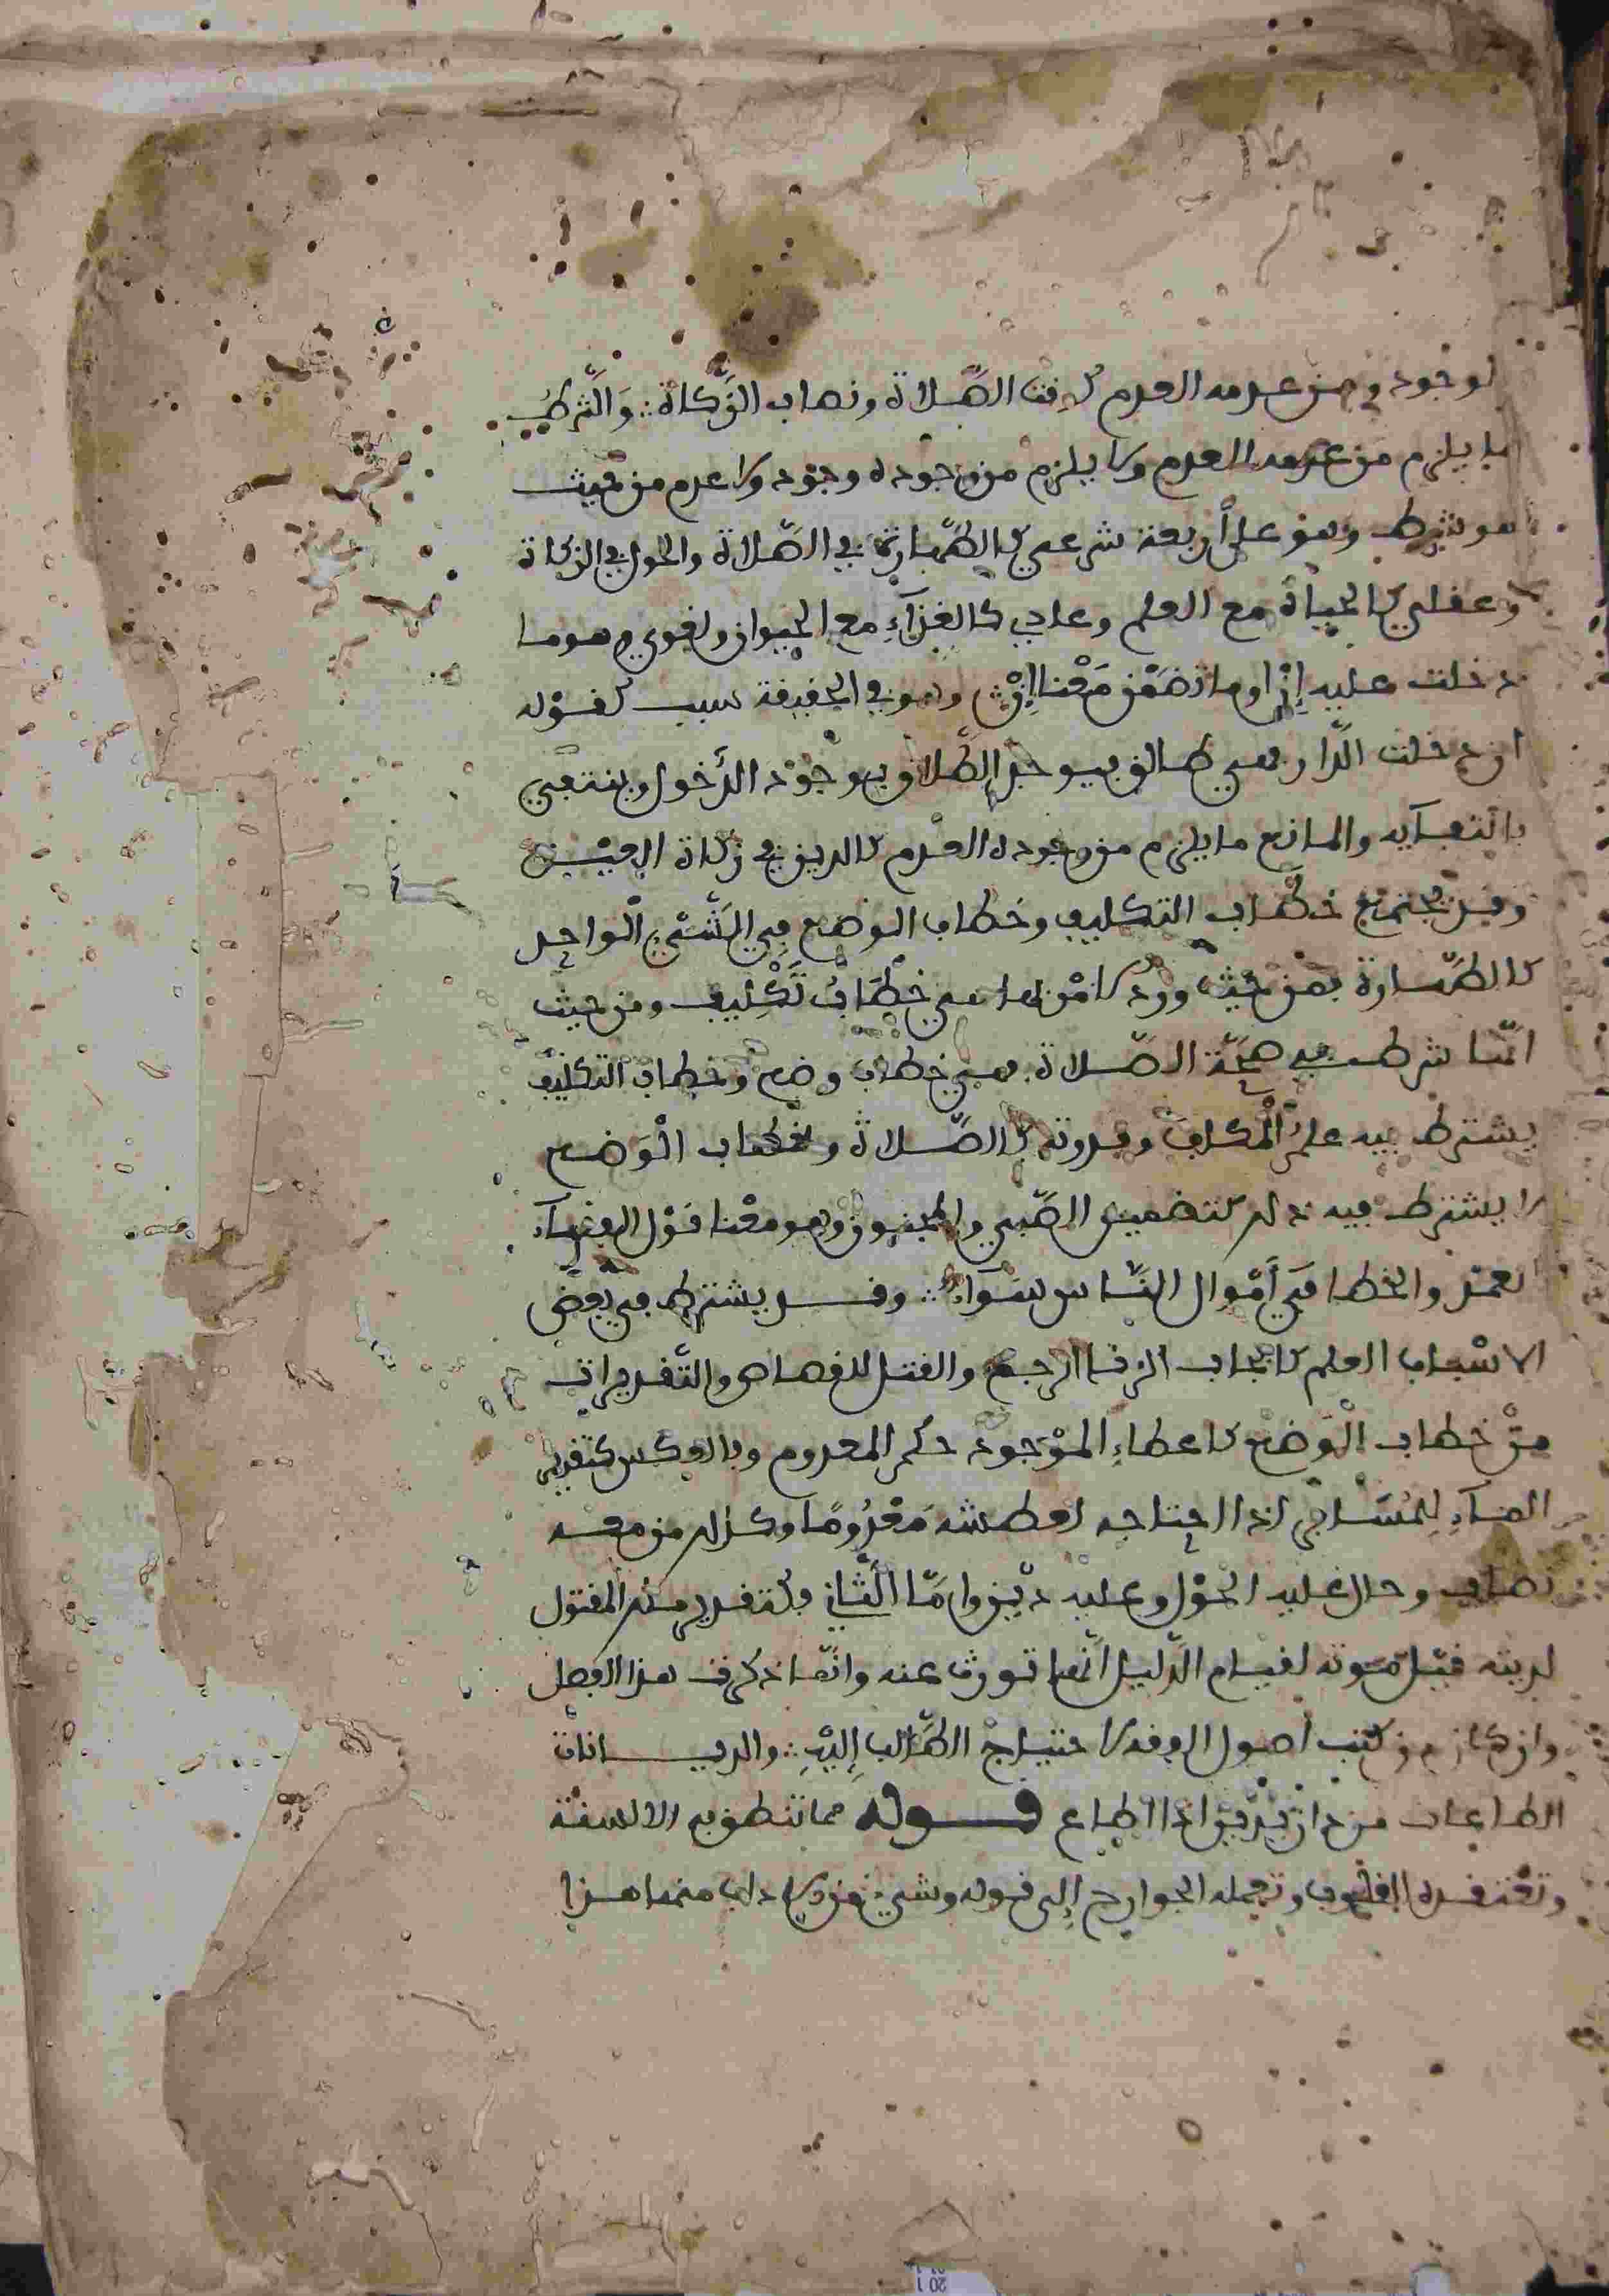 لوجود ومن عدمه العدم كوقت الصَّلاة ونصاب الزَّكاة ∴ وَالشَّرطُ
ما يلزم من عدمه العدم ولا يلزم من وجوده وجود ولا عدم من حيث
هو شرط وهو على أربعة شرعي كالطهارة في الصَّلاة والحول في الزكاة
وعقلي كالحياة مع العلم وعادي كالغذآءِ مع الحيوان ولغوي وهو ما
دخلت عليه إنْ او ما تضمَّن مَعْنا إنْ وهو في الحقيقة سبب كقوْله
ان دخلت الدَّار فهي طالق فيوجد الطّلاق بوجوْد الدّخول وينتفي
بانتفآيه والمانع ما يلزم من وجوده العدم كالدين في زكاة العيْـن
وقد يجتمع خطاب التكليف وخطاب الوضع في الشَّيْءِ الواحد
كالطّهارة فمن حيْث ورود الامْر بها هي خِطَابُ تَكْلِيف ومن حيث
انّها شرط في صِحَّة الصّلاة فهي خطاب وضع وخطاب التكليف
يشترط فيه علم المكلف وقدرته كالصّلاة وخطاب الْوَضع
لا يشترط فيه ذلك كتضمين الصّبي والمجنون وهو معْنا قوْل الفقهآء
العمد والخطا في أمْوال النّاس سَوَآءٌ ∴ وقـد يشترط في بعض
الاسْباب العلم كايجاب الزنا الرجم والقتل للقصاص والتّقديرات
منْ خطاب الْوَضع كاعطاءِ الموْجود حكم المعدوم وبالعكس كتقدير
المآءِ لِلمُسَافِر اذا احتاجه لعطشه مَعْدُومًا وكذلك من معه
نصاب وحال عليه الحوْل وعليه ديْن وامّا الثّاني فكتقدير ملك المقتول
لديته قبْل موْته لقيام الدّليل أنّها تورث عنه وانّما ذكرت هذا الفصل
وان كان من كتب أصول الفقه لاحتياج الطّالب إليْهِ ∴ والديـانات
الطاعات من دان يَدِين اذا اطاع قـــوله مما تنطق به الالسنة
وتعْتقده القلوب وتعمله الجوارح إلى قوله وشيء من الاداب منها هـذا